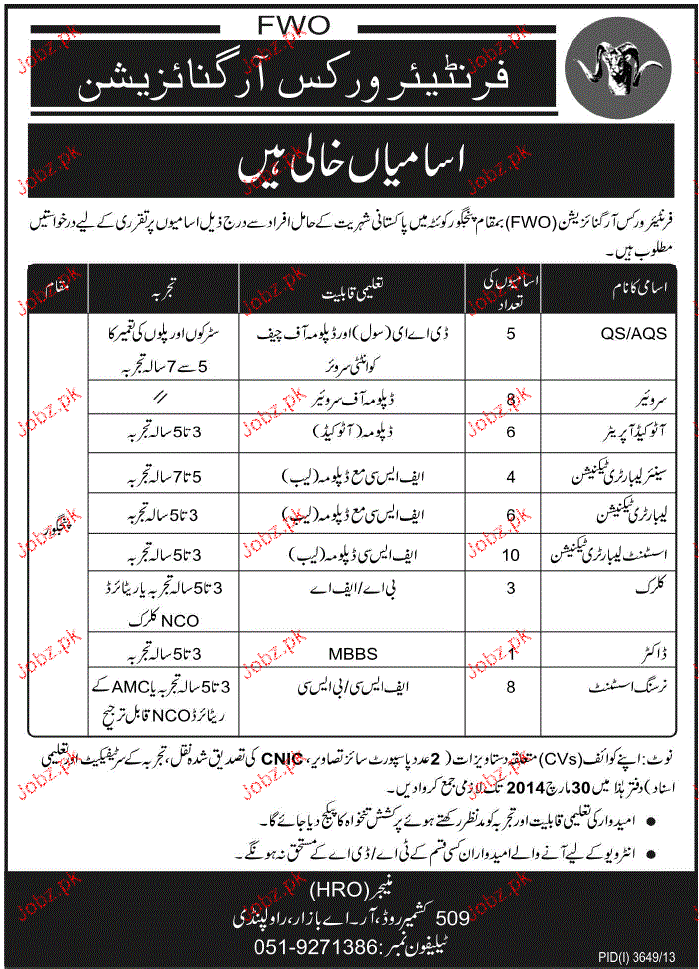 FWO
فرنٹیئر ورکس آرگنائزیشن
اسامیاں خالی ہیں
فرنٹیئر ورکس آرگنائزیشن (FWO) بمقام پنجگور کوئٹہ میں پاکستانی شہریت کے حامل افراد سے درج ذیل اسامیوں پر تقرری کے لیے درخواستیں
مطلوب ہیں۔
اسامی کا نام اسامیوں کی تعداد تعلیمی قابلیت تجربہ مقام
QS/AQS 5 ڈی اے ای (سول) اور ڈپلومہ آف چیف سڑکوں اور پلوں کی تعمیر کا
کوانٹٹی سروئر 5 سے 7 سالہ تجربہ
سروئیر 8 ڈپلومہ آف سروئیر //
آٹو کیڈ آپریٹر 6 ڈپلومہ (آٹو کیڈ) 3 تا 5 سالہ تجربہ
سینئر لیبارٹری ٹیکنیشن 4 ایف ایس سی مع ڈپلومہ (لیب) 5 تا 7 سالہ تجربہ
لیبارٹری ٹیکنیشن 6 ایف ایس سی مع ڈپلومہ (لیب) 3 تا 5 سالہ تجربہ
پنجگور
اسسٹنٹ لیبارٹری ٹیکنیشن 10 ایف ایس سی ڈپلومہ (لیب) 3 تا 5 سالہ تجربہ
کلرک 3 بی اے/ایف اے 3 تا 5 سالہ تجربہ یا ریٹائرڈ
NCO کلرک
ڈاکٹر 1 MBBS 3 تا 5 سالہ تجربہ
نرسنگ اسسٹنٹ 8 ایف ایس سی/بی ایس سی 3 تا 5 سالہ تجربہ یا AMC کے
ریٹائرڈ NCO قابل ترجیح
نوٹ: اپنے کوائف (CVs) متعلقہ دستاویزات (2 عدد پاسپورٹ سائز تصاویر، CNIC کی تصدیق شدہ نقل، تجربہ کے سرٹیفکیٹ اور تعلیمی
اسناد) دفتر ہذا میں 30 مارچ 2014 تک لازمی جمع کروا دیں۔
● امیدوار کی تعلیمی قابلیت اور تجربہ کو مدنظر رکھتے ہوئے پرکشش تنخواہ کا پیکج دیا جائے گا۔
● انٹرویو کے لیے آنے والے امیدوار ان کسی قسم کے ٹی اے/ڈی اے کے مستحق نہ ہونگے۔
منیجر (HRO)
509 کشمیر روڈ، آر۔اے بازار، راولپنڈی
ٹیلیفون نمبر: 051-9271386
PID(I) 3649/13
Jobz.pk